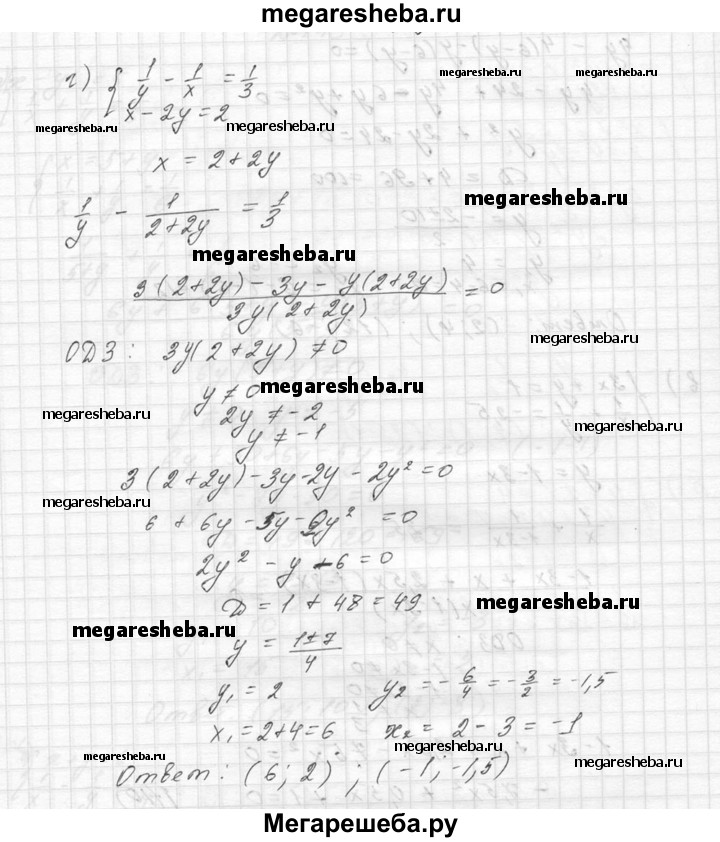 megaresheba.ru
г) { 1/y - 1/x = 1/3
megaresheba.ru
x - 2y = 2
megaresheba.ru megaresheba.ru
x = 2 + 2y
1/y - 1/(2 + 2y) = 1/3
megaresheba.ru
megaresheba.ru
(3(2 + 2y) - 3y - y(2 + 2y))/(3y(2 + 2y)) = 0
megaresheba.ru
ОДЗ: 3y(2 + 2y) ≠ 0
y ≠ 0
megaresheba.ru
megaresheba.ru
2y ≠ -2
megaresheba.ru
y ≠ -1
3(2 + 2y) - 3y - 2y - 2y² = 0
megaresheba.ru megaresheba.ru
6 + 6y - 5y - 2y² = 0
2y² - y - 6 = 0
D = 1 + 48 = 49
megaresheba.ru
megaresheba.ru
y = (1±7)/4
y₁ = 2 y₂ = -6/4 = -3/2 = -1,5
megaresheba.ru
x₁ = 2+4 = 6 x₂ = 2 - 3 = -1
megaresheba.ru
megaresheba.ru
megaresheba.ru
Ответ: (6; 2); (-1; -1,5)
megaresheba.ru
Мегарешеба.ру